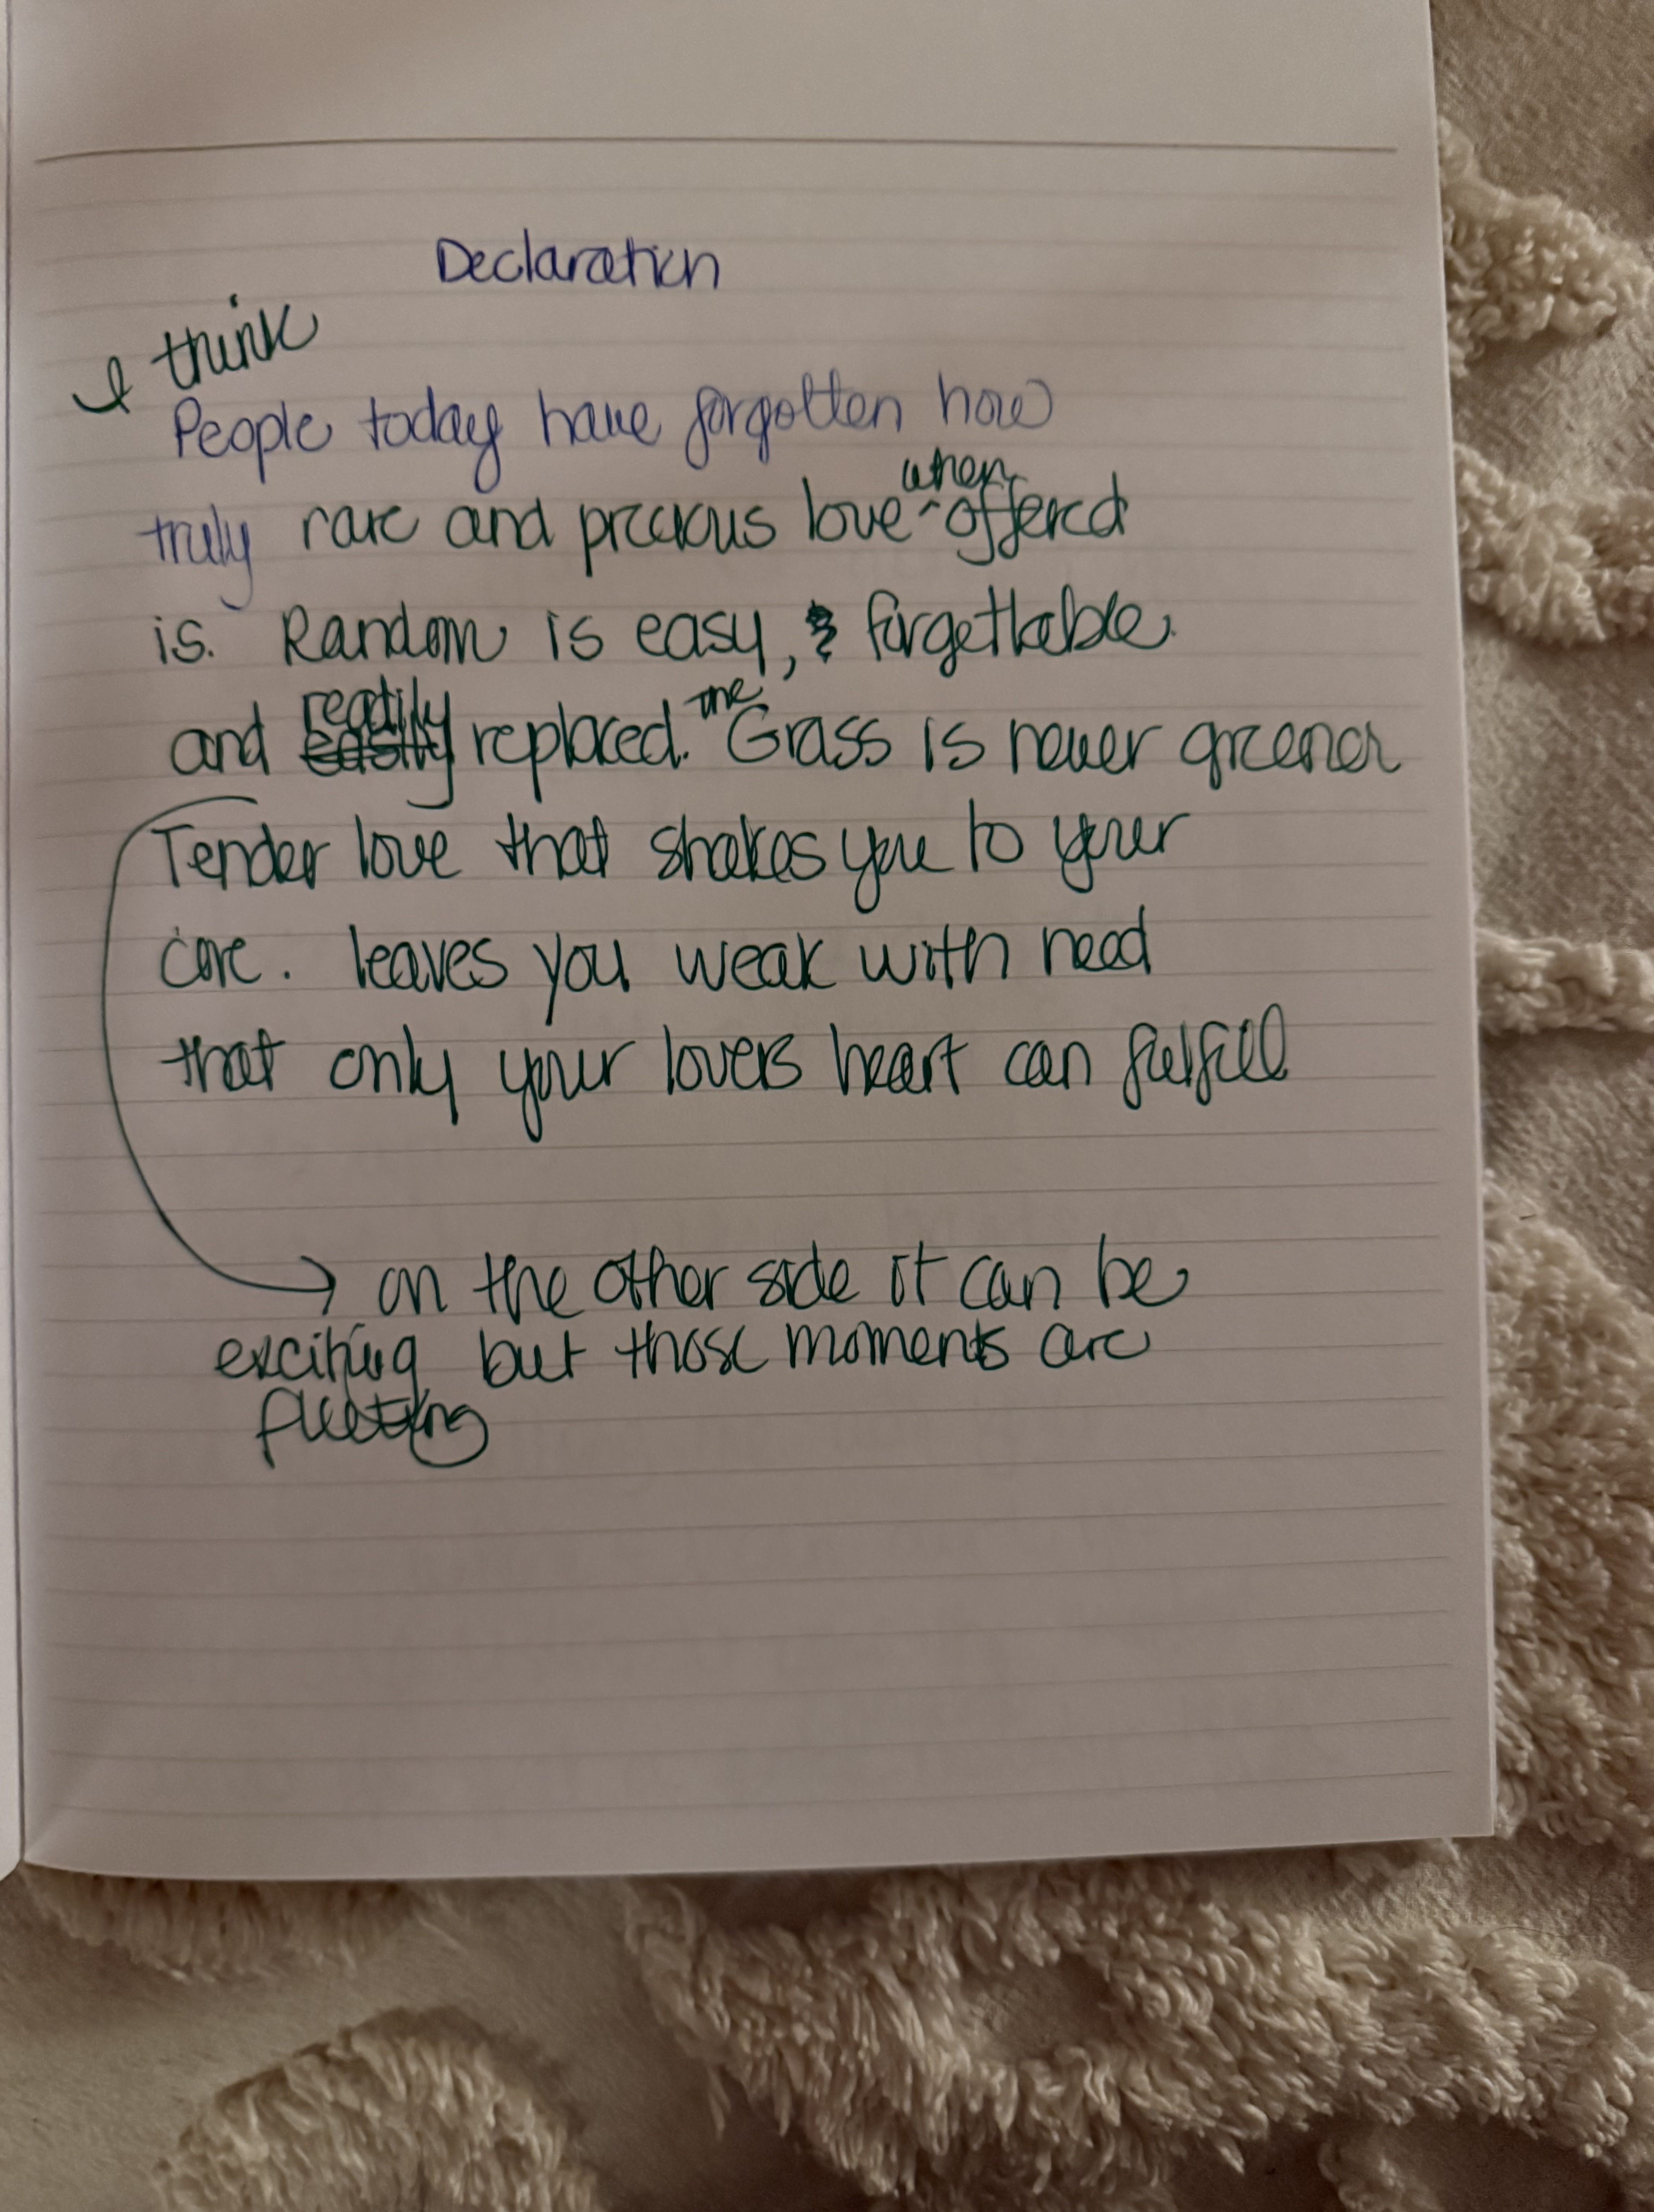 Declaration
I think
People today have forgotten how
truly rare and precious love when offered
is. Random is easy, & forgettable.
and readily replaced. the Grass is never greener
Tender love that shakes you to your
core. leaves you weak with need
that only your lovers heart can fulfill
→ on the other side it can be
exciting but those moments are
fleeting